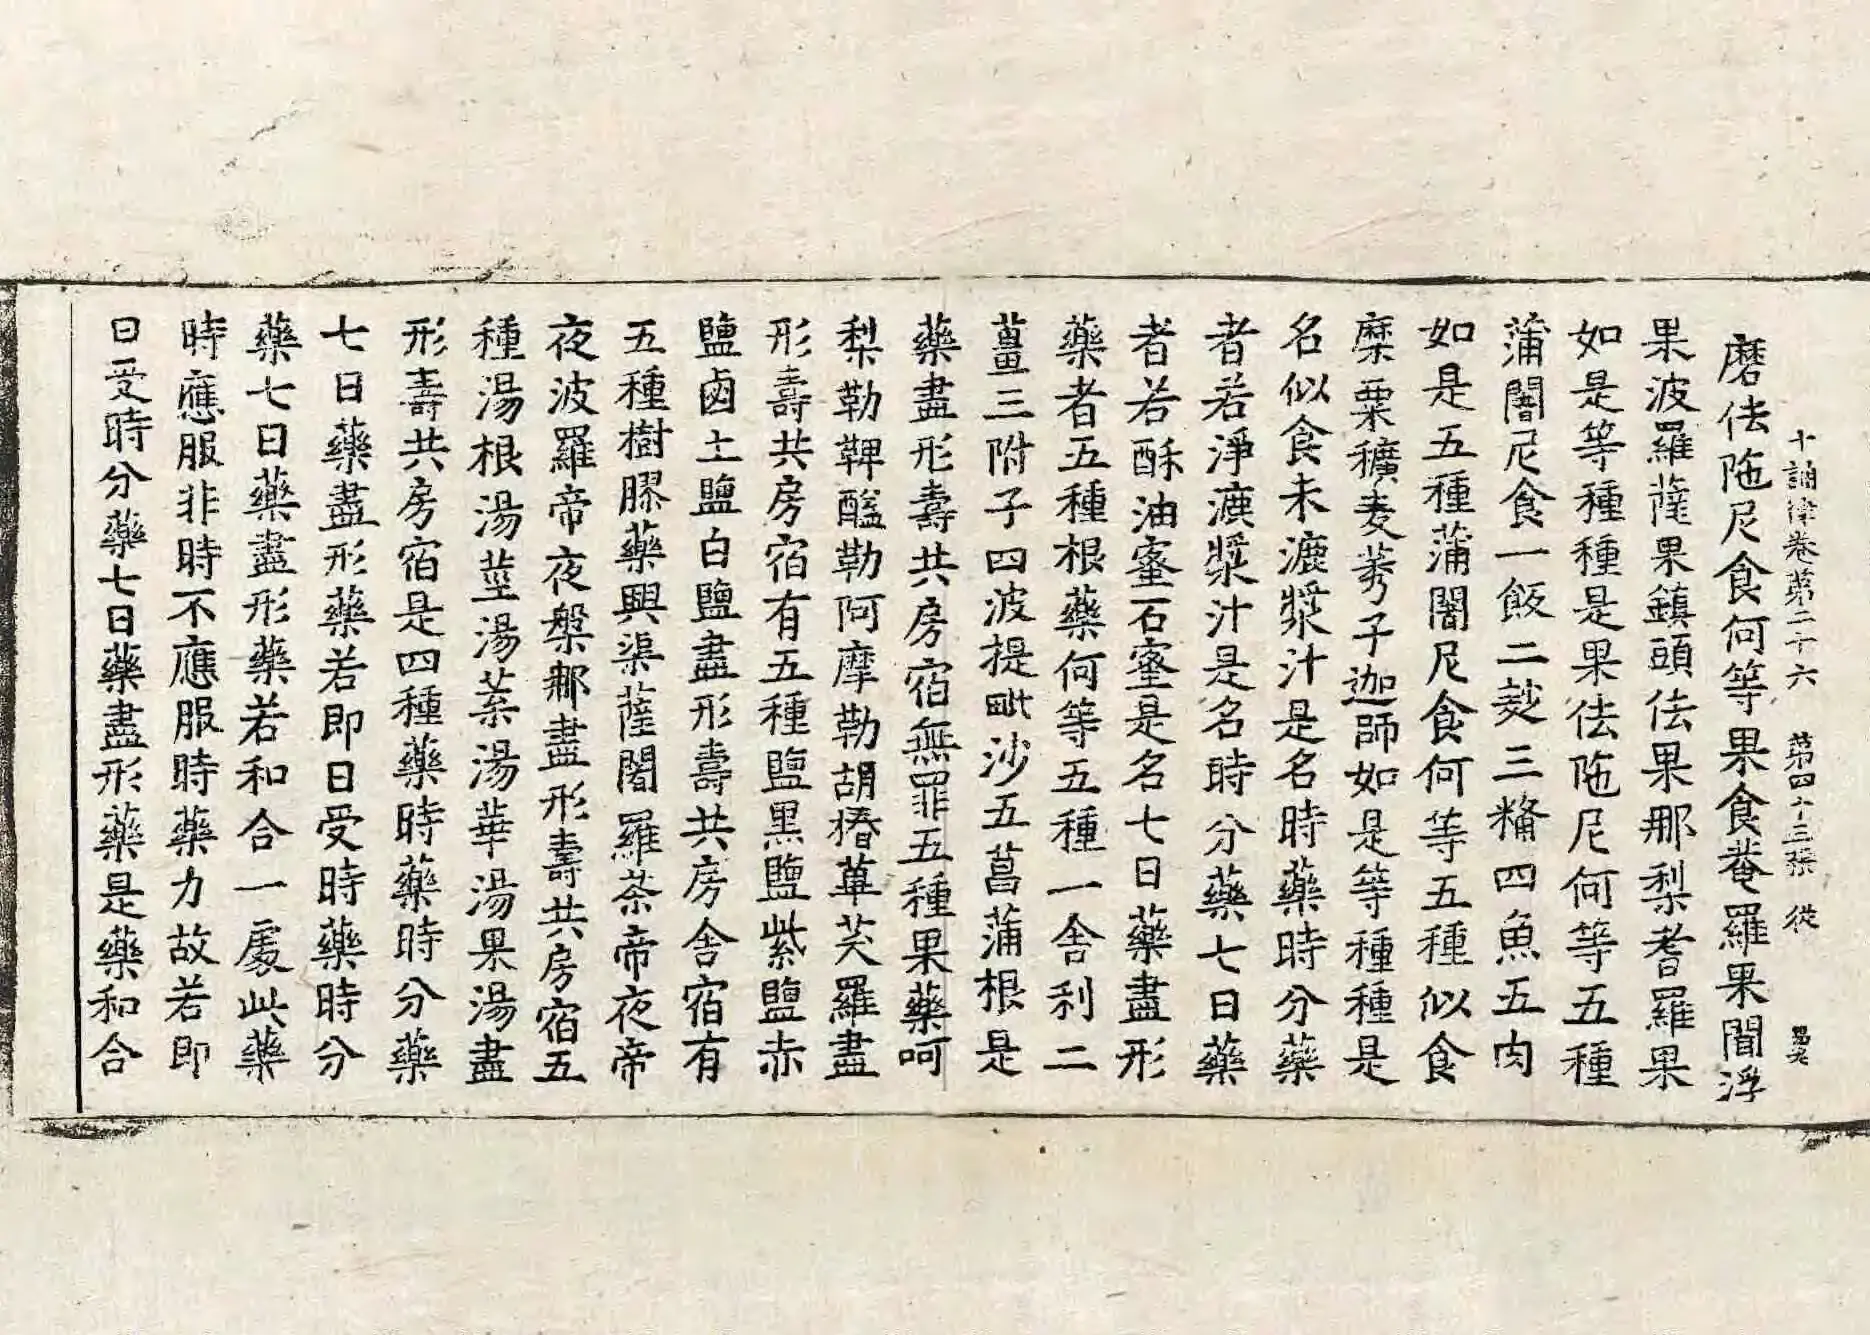 十誦律卷第二十六　第四十三張　從
磨佉陁尼食何等果食菴羅果閻浮
果波羅薩果鎮頭佉果那梨耆羅果
如是等種種是果佉陁尼何等五種
蒲闍尼食一飯二麨三糒四魚五肉
如是五種蒲闍尼食何等五種似食
糜粟穬麦莠子迦師如是等種種是
名似食未漉漿汁是名時藥時分藥
者若淨漉漿汁是名時分藥七日藥
者若酥油蜜石蜜是名七日藥盡形
藥者五種根藥何等五種一舍利二
薑三附子四波提毗沙五菖蒲根是
藥盡形壽共房宿無罪五種果藥呵
梨勒鞞醯勒阿摩勒胡椿蓽茇羅盡
形壽共房宿有五種鹽黑鹽紫鹽赤
鹽鹵土鹽白鹽盡形壽共房舍宿有
五種樹膠藥興渠薩闍羅茶帝夜帝
夜波羅帝夜槃那盡形壽共房宿五
種湯根湯莖湯葉湯華湯果湯盡
形壽共房宿是四種藥時藥時分藥
七日藥盡形藥若即日受時藥時分
藥七日藥盡形藥若和合一處此藥
時應服非時不應服時藥力故若即
日受時分藥七日藥盡形藥是藥和合